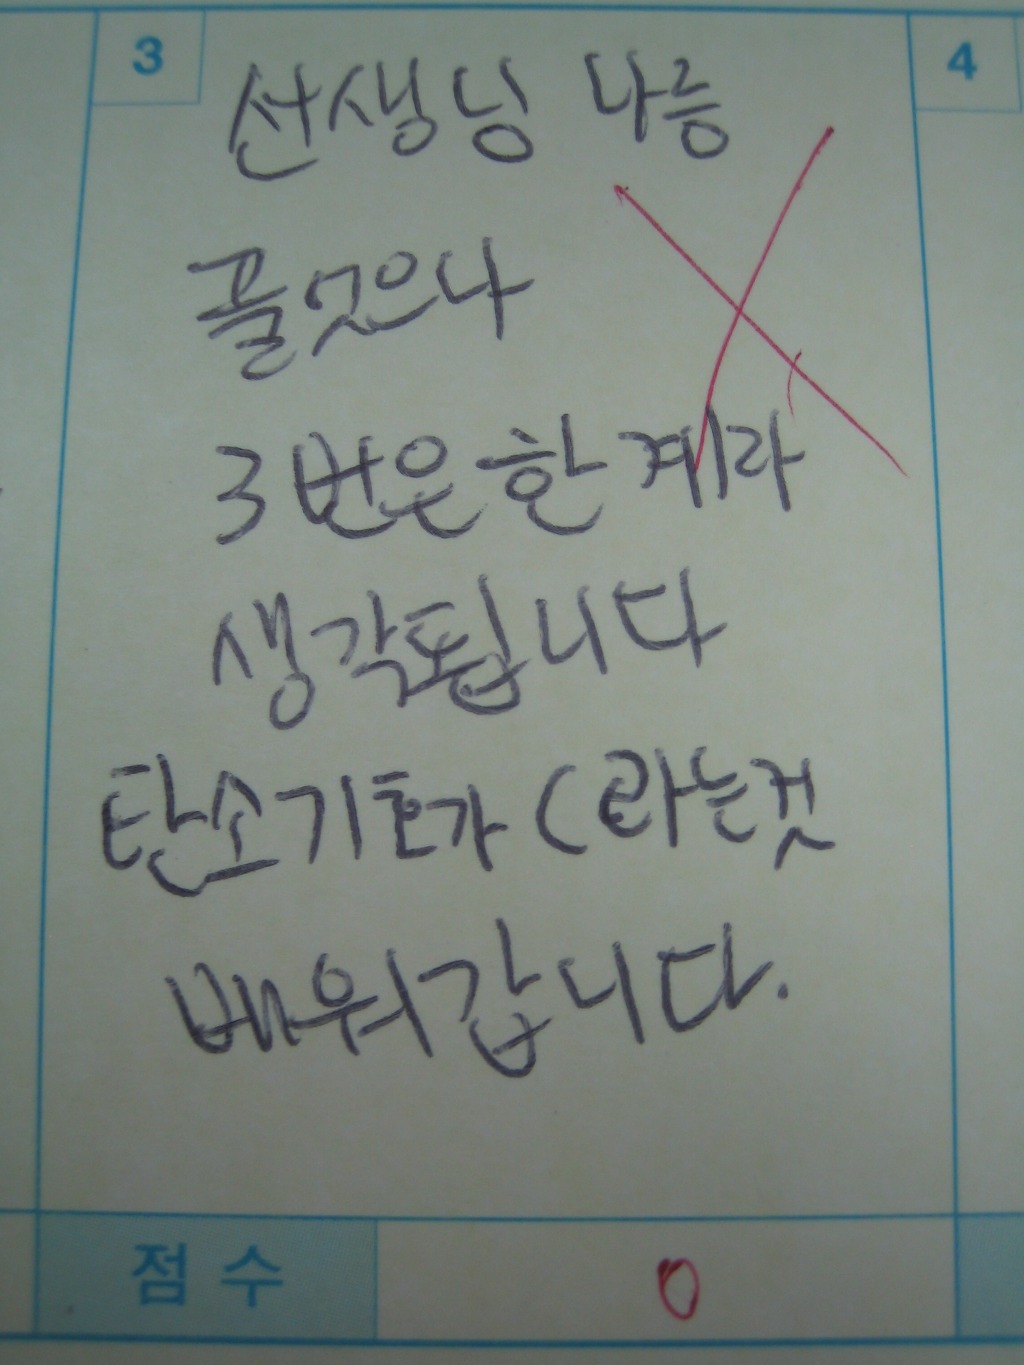 3
4
선생님 나름
끌엿으나
3번은 한계라
생각됩니다
탄소기호가 C라는것
배워갑니다.
점 수
0